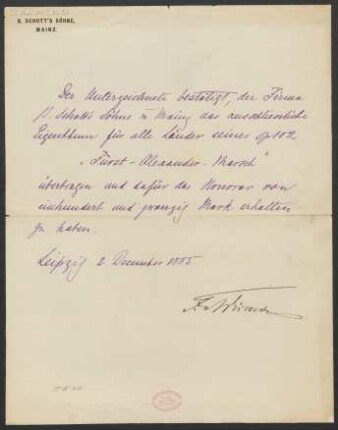 B. SCHOTT'S SÖHNE,
MAINZ.
Der Unterzeichnete bestätigt, der Firma
B. Schott's Söhne in Mainz das ausschliessliche
Eigenthum für alle Länder seines op 102
"Fürst-Alexander-Marsch"
übertragen und dafür das Honorar von
einhundert und zwanzig Mark erhalten
zu haben.
Leipzig 2. December 1885